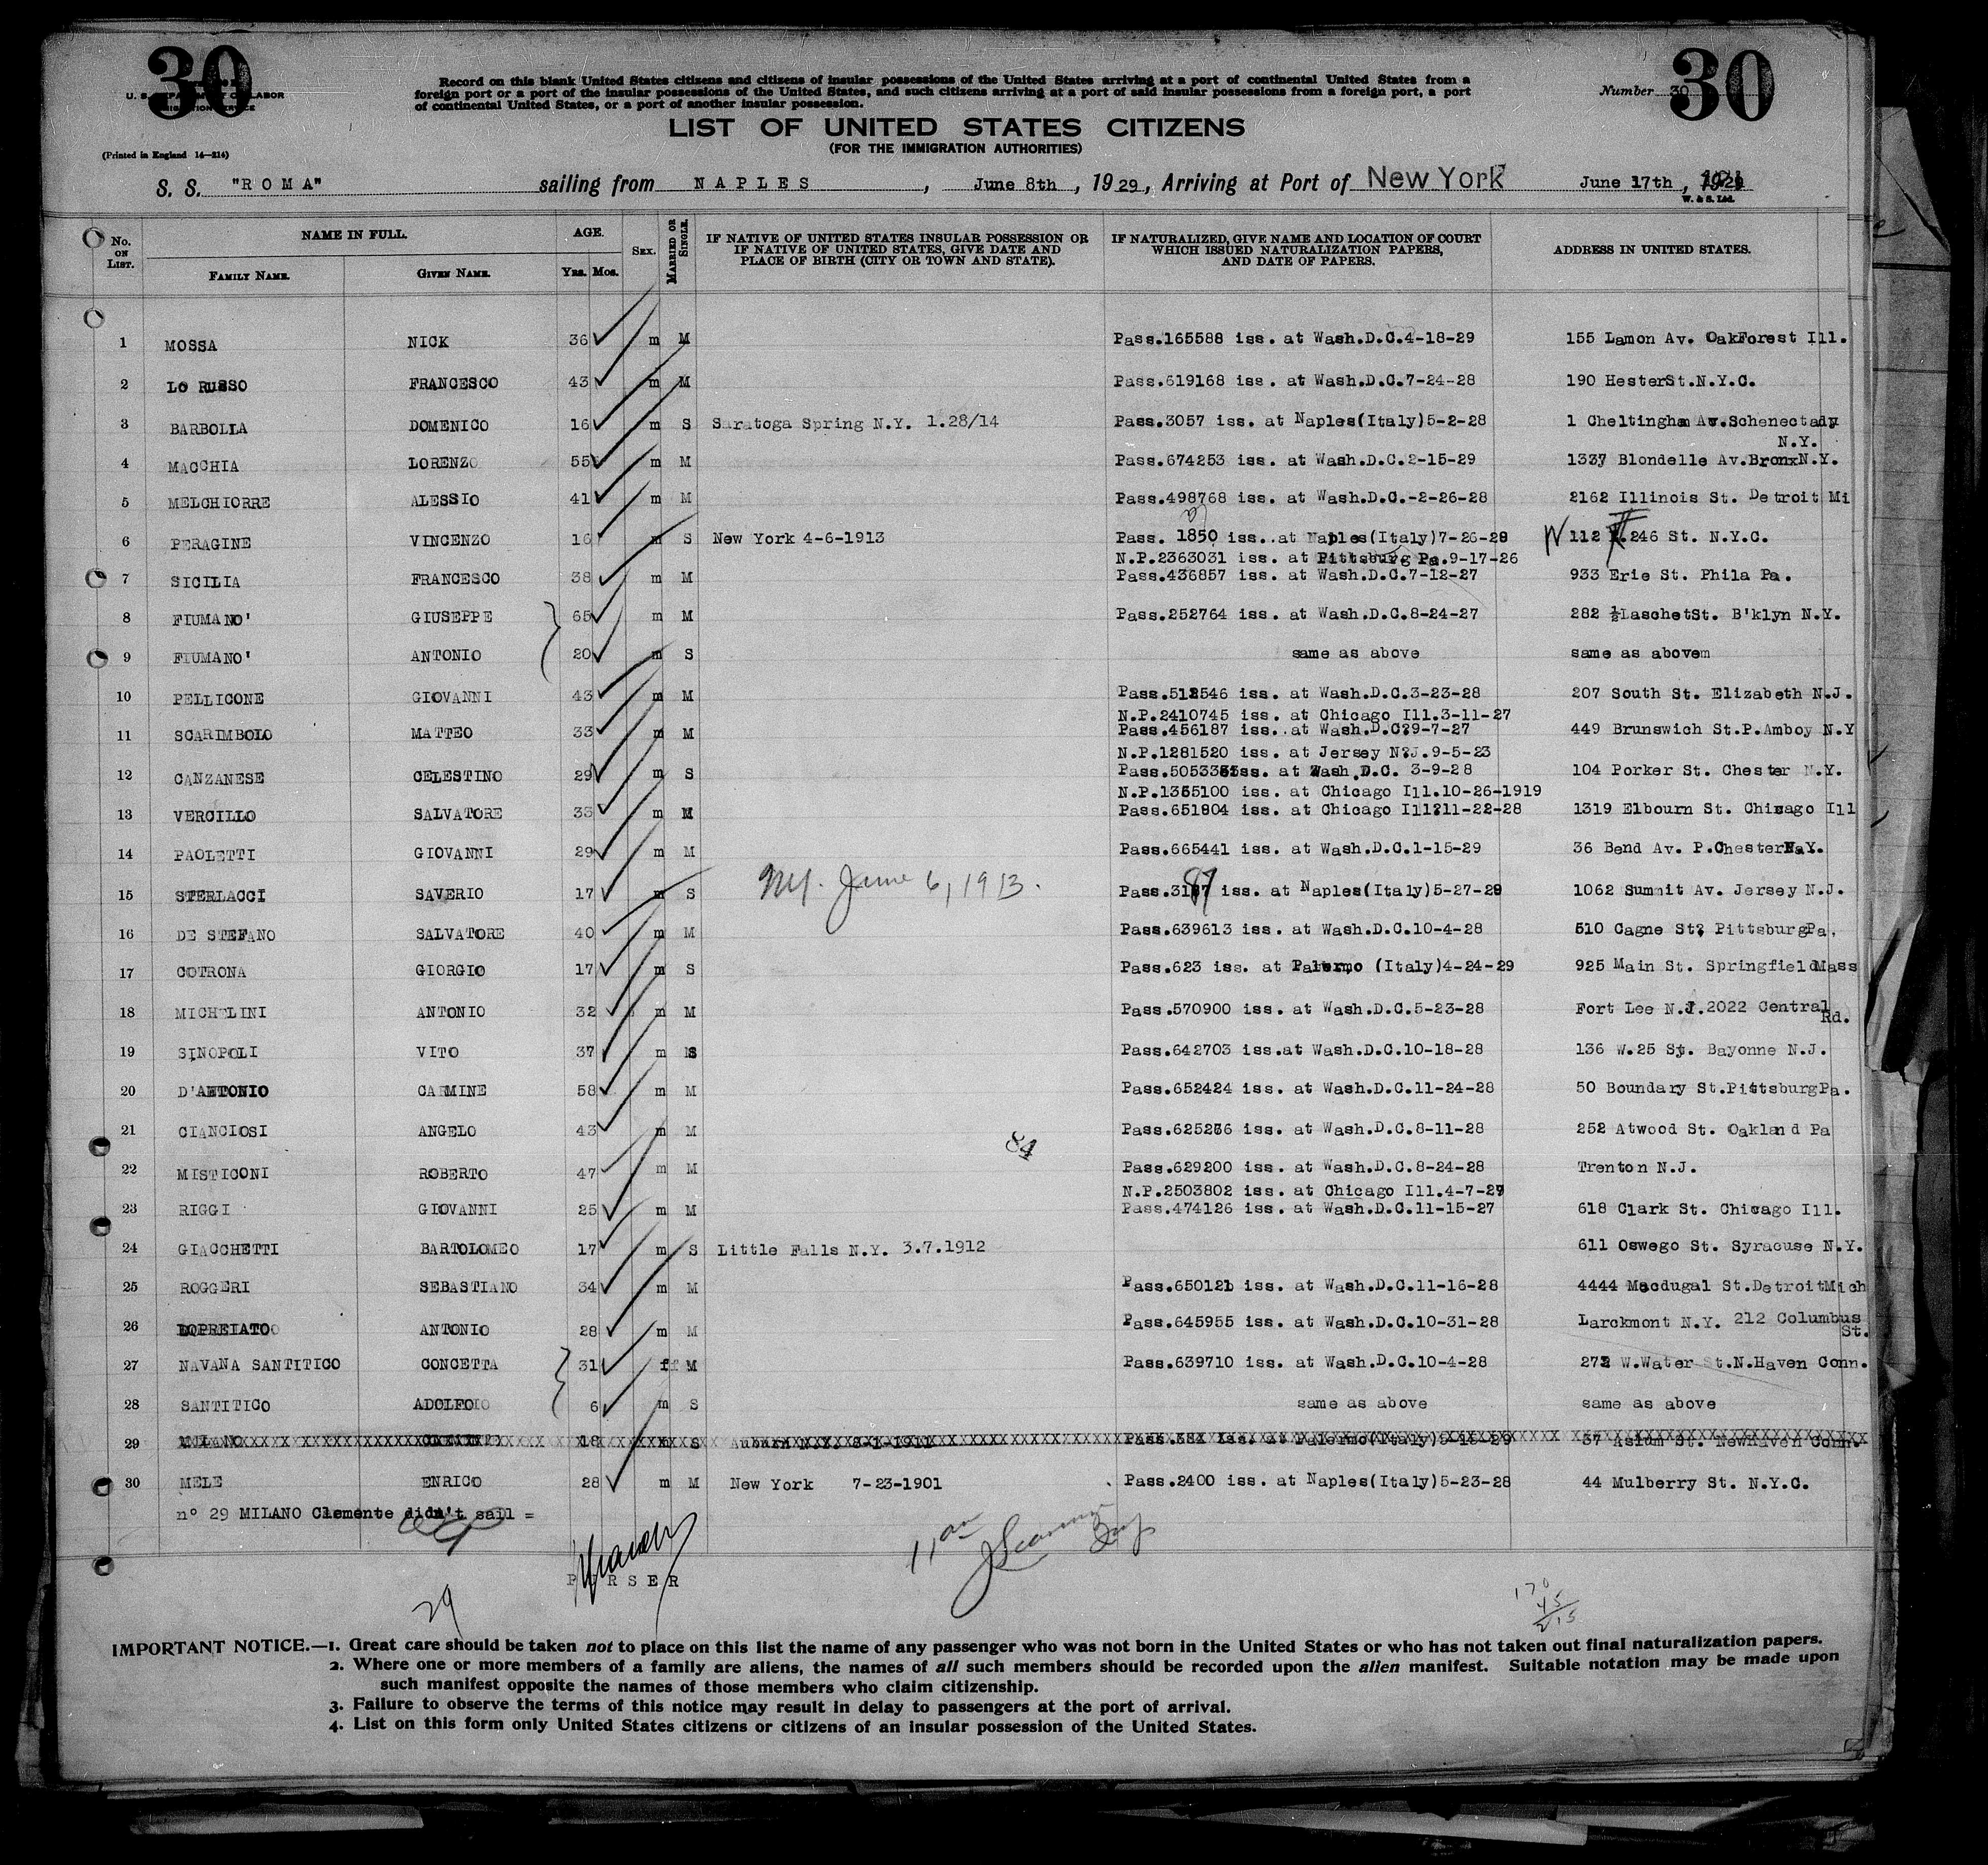 30
30
U. S. DEPARTMENT OF LABOR
IMMIGRATION SERVICE
Record on this blank United States citizens and citizens of insular possessions of the United States arriving at a port of continental United States from a
foreign port or a port of the insular possessions of the United States, and such citizens arriving at a port of said insular possessions from a foreign port, a port
of continental United States, or a port of another insular possession.
Number 30
LIST OF UNITED STATES CITIZENS
(FOR THE IMMIGRATION AUTHORITIES)
(Printed in England 14—214)
S. S. "ROMA" sailing from NAPLES, June 8th, 1929, Arriving at Port of New York June 17th, 1929
W. & S. Ltd.
No. ON LIST. NAME IN FULL. FAMILY NAME. GIVEN NAME. AGE. YRS. MOS. SEX. MARRIED OR SINGLE. IF NATIVE OF UNITED STATES INSULAR POSSESSION OR IF NATIVE OF UNITED STATES, GIVE DATE AND PLACE OF BIRTH (CITY OR TOWN AND STATE). IF NATURALIZED, GIVE NAME AND LOCATION OF COURT WHICH ISSUED NATURALIZATION PAPERS, AND DATE OF PAPERS. ADDRESS IN UNITED STATES.
1 MOSSA NICK 36 m M Pass.165588 iss. at Wash.D.C.4-18-29 155 Lamon Av. OakForest Ill.
2 LO RUSSO FRANCESCO 43 m M Pass.619168 iss. at Wash.D.C.7-24-28 190 HesterSt.N.Y.C.
3 BARBOLLA DOMENICO 16 m S Saratoga Spring N.Y. 1.28/14 Pass.3057 iss. at Naples(Italy)5-2-28 1 Cheltingham Av.Schenectady
N.Y.
4 MACCHIA LORENZO 55 m M Pass.674253 iss. at Wash.D.C.2-15-29 1337 Blondelle Av.BronxN.Y.
5 MELCHIORRE ALESSIO 41 m M Pass.498768 iss. at Wash.D.C.-2-26-28 2162 Illinois St. Detroit Mi
6 PERAGINE VINCENZO 16 m S New York 4-6-1913 Pass. 1850 iss. at Naples(Italy)7-26-28 W 112 246 St. N.Y.C.
N.P.2363031 iss. at Pittsburg Pa.9-17-26
7 SICILIA FRANCESCO 38 m M Pass.436857 iss. at Wash.D.C.7-12-27 933 Erie St. Phila Pa.
8 FIUMANO' GIUSEPPE 65 m M Pass.252764 iss. at Wash.D.C.8-24-27 282 ½LaschetSt. B'klyn N.Y.
9 FIUMANO' ANTONIO 20 m S same as above same as abovem
10 PELLICONE GIOVANNI 43 m M Pass.512546 iss. at Wash.D.C.3-23-28 207 South St. Elizabeth N.J.
N.P.2410745 iss. at Chicago Ill.3-11-27
11 SCARIMBOLO MATTEO 33 m M Pass.456187 iss. at Wash.D.C?9-7-27 449 Brunswich St.P.Amboy N.Y
N.P.1281520 iss. at Jersey N?J.9-5-23
12 CANZANESE CELESTINO 29 m S Pass.505335iss. at Wash.D.C. 3-9-28 104 Porker St. Chester N.Y.
N.P.1355100 iss. at Chicago Ill.10-26-1919
13 VERCILLO SALVATORE 33 m M Pass.651804 iss. at Chicago Ill?11-22-28 1319 Elbourn St. Chicago Ill
14 PAOLETTI GIOVANNI 29 m M Pass.665441 iss. at Wash.D.C.1-15-29 36 Bend Av. P.ChesterN.Y.
15 STERLACCI SAVERIO 17 m S NY. June 6, 1913. Pass.3187 iss. at Naples(Italy)5-27-29 1062 Summit Av. Jersey N.J.
16 DE STEFANO SALVATORE 40 m M Pass.639613 iss. at Wash.D.C.10-4-28 510 Cagne St? PittsburgPa.
17 COTRONA GIORGIO 17 m S Pass.623 iss. at Palermo (Italy)4-24-29 925 Main St. SpringfieldMass
18 MICHELINI ANTONIO 32 m M Pass.570900 iss. at Wash.D.C.5-23-28 Fort Lee N.J.2022 Central
Rd.
19 SINOPOLI VITO 37 m S Pass.642703 iss.at Wash.D.C.10-18-28 136 W.25 St. Bayonne N.J.
20 D'ANTONIO CARMINE 58 m M Pass.652424 iss. at Wash.D.C.11-24-28 50 Boundary St.PittsburgPa.
21 CIANCIOSI ANGELO 43 m M Pass.625236 iss. at Wash.D.C.8-11-28 252 Atwood St. Oakland Pa
84
22 MISTICONI ROBERTO 47 m M Pass.629200 iss. at Wash.D.C.8-24-28 Trenton N.J.
N.P.2503802 iss. at Chicago Ill.4-7-27
23 RIGGI GIOVANNI 25 m M Pass.474126 iss. at Wash.D.C.11-15-27 618 Clark St. Chicago Ill.
24 GIACCHETTI BARTOLOMEO 17 m S Little Falls N.Y. 3.7.1912 611 Oswego St. Syracuse N.Y.
25 ROGGERI SEBASTIANO 34 m M Pass.650121 iss. at Wash.D.C.11-16-28 4444 Macdugal St.DetroitMich
26 LOPREIATO ANTONIO 28 m M Pass.645955 iss. at Wash.D.C.10-31-28 Larckmont N.Y. 212 Columbus
St.
27 NAVANA SANTITICO CONCETTA 31 f M Pass.639710 iss. at Wash.D.C.10-4-28 272 W.Water St.N.Haven Conn.
28 SANTITICO ADOLFO 6 m S same as above same as above
29 MILANO CLEMENTE 18 m S Auburn N.Y. Pass.381 iss. at Palermo(Italy) 37 Aslum St. NewHaven Conn.
30 MELE ENRICO 28 m M New York 7-23-1901 Pass.2400 iss. at Naples(Italy)5-23-28 44 Mulberry St. N.Y.C.
n° 29 MILANO Clemente didn't sail =
PURSER
29
170
45
215
IMPORTANT NOTICE.—1. Great care should be taken not to place on this list the name of any passenger who was not born in the United States or who has not taken out final naturalization papers.
2. Where one or more members of a family are aliens, the names of all such members should be recorded upon the alien manifest. Suitable notation may be made upon
such manifest opposite the names of those members who claim citizenship.
3. Failure to observe the terms of this notice may result in delay to passengers at the port of arrival.
4. List on this form only United States citizens or citizens of an insular possession of the United States.